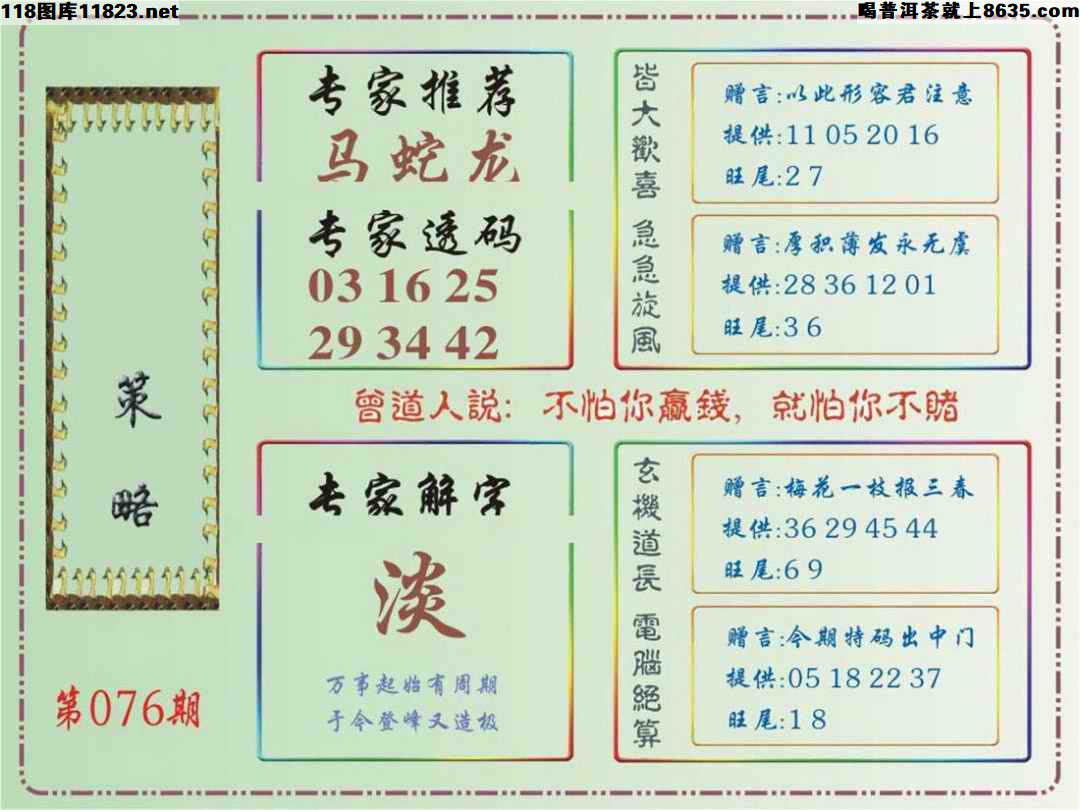 118图库11823.net
喝普洱茶就上8635.com
策略
第076期
专家推荐
马蛇龙
专家透码
03 16 25
29 34 42
皆大歡喜
赠言:以此形容君注意
提供:11 05 20 16
旺尾:2 7
急急旋風
赠言:厚积薄发永无虞
提供:28 36 12 01
旺尾:3 6
曾道人説: 不怕你贏錢, 就怕你不賭
专家解字
淡
万事起始有周期
于今登峰又造极
玄機道長
赠言:梅花一枝报三春
提供:36 29 45 44
旺尾:6 9
電腦絕算
赠言:今期特码出中门
提供:05 18 22 37
旺尾:1 8